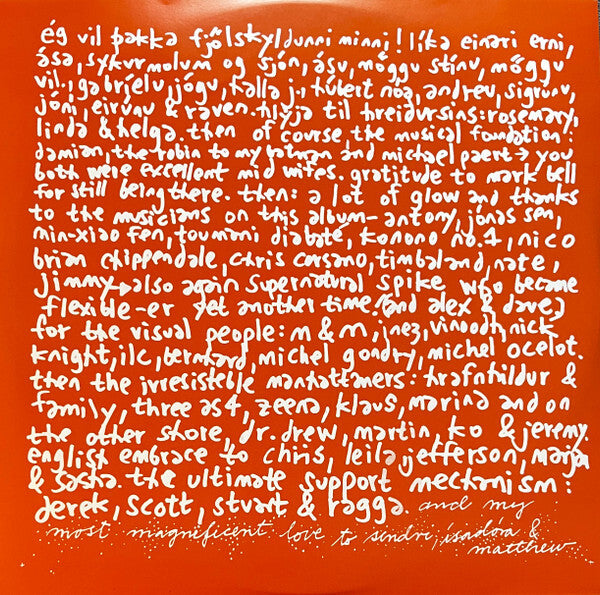 ég vil þakka fjölskyldunni minni! líka einari erni,
ása, sykurmolum og sjón, ásu, möggu stínu, möggu
vil., gabríelu, jógu, kalla j., húbert nóa, andreu, sigrúnu,
jóni, eirúnu & raven. hlyja til hreidursins: rosemary,
linda & helga. then of course the musical foundation:
damian, the robin to my batman and michael paert → you
both were excellent mid wifes. gratitude to mark bell
for still being there. then: a lot of glow and thanks
to the musicians on this album - antony, jónas sen,
min-xiao fen, toumani diabate, konono no.1, nico
brian chippendale, chris corsano, timbaland, nate,
jimmy → also again supernatural spike who became
flexible-er yet another time. (and alex & dave)
for the visual people: m & m, inez, vinoodh, nick
knight, ilc, bernhard, michel gondry, michel ocelot.
then the irresisteble manhattaners: hrafnhildur &
family, three as 4, zeena, klaus, marina and on
the other shore, dr. drew, martin, ko & jeremy.
english embrace to chris, leila, jefferson, marjan
& sasha. the ultimate support mechanism:
derek, scott, stuart & ragga. and my
most magnificent love to sindri, ísadóra &
matthew